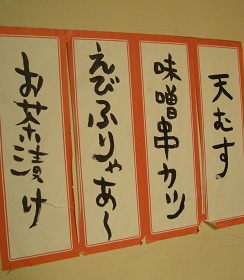 天むす
味噌串カツ
えびふりゃあ～
お茶漬け